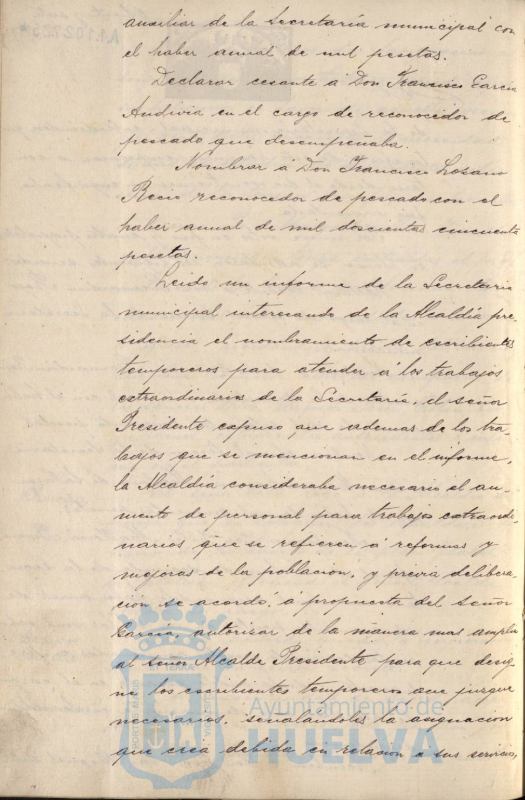 auxiliar de la Secretaría municipal con
el haber anual de mil pesetas.
Declarar cesante á Don Francisco García
Andivia en el cargo de reconocedor de
pescado que desempeñaba.
Nombrar á Don Francisco Lozano
Recio reconocedor de pescado con el
haber anual de mil doscientas cincuenta
pesetas.
Leido un informe de la Secretaria
municipal interesando de la Alcaldía pre-
sidencia el nombramiento de escribientes
temporeros para atender á los trabajos
extraordinarios de la Secretaría, el señor
Presidente expuso que ademas de los tra-
bajos que se mencionan en el informe,
la Alcaldía consideraba necesario el au-
mento de personal para trabajos extraordi-
narios que se refieren á reformas y
mejoras de la poblacion, y previa delibera-
cion se acordó, á propuesta del señor
García, autorizar de la manera mas amplia
al señor Alcalde Presidente para que desig-
ne los escribientes temporeros que juzgue
necesarios, señalándoles la asignacion
que crea debida en relacion á sus servicios,
Ayuntamiento de
HUELVA